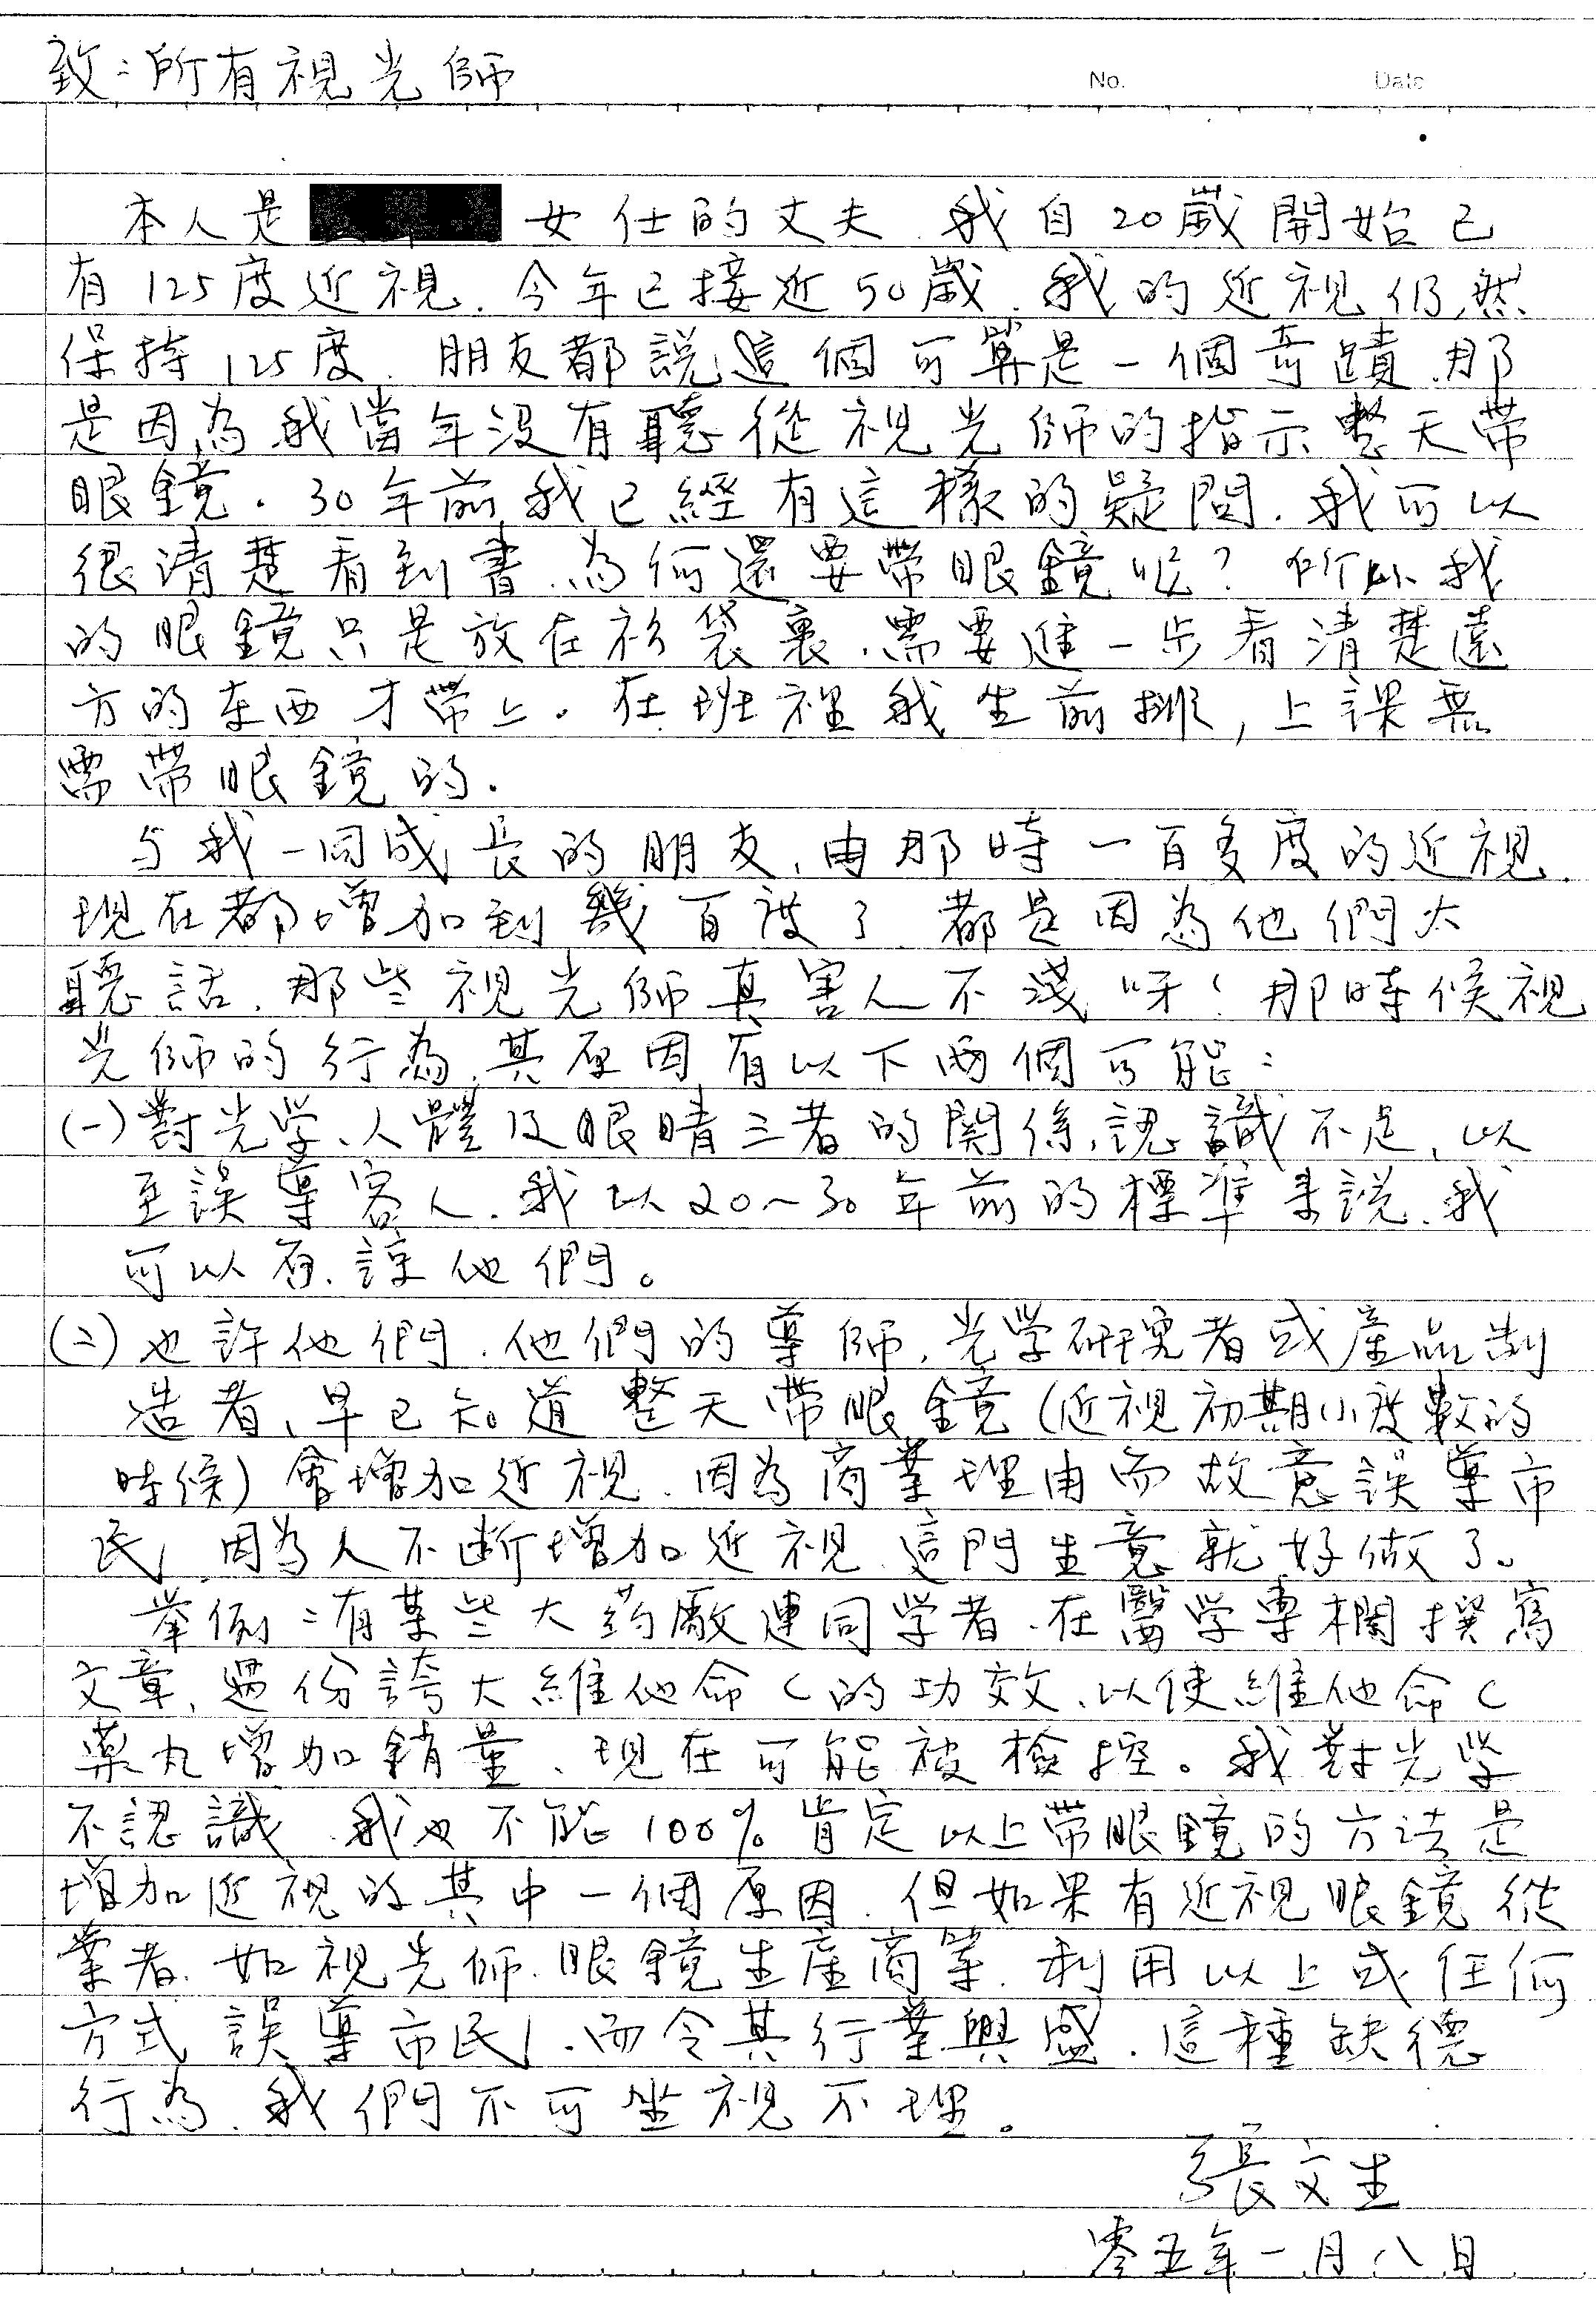 致：所有視光師
No. Date
本人是 女仕的丈夫．我自20歲開始已
有125度近視．今年已接近50歲．我的近視仍然
保持125度．朋友都說這個可算是一個奇蹟．那
是因為我當年没有聽從視光師的指示整天帶
眼鏡．30年前我已經有這樣的疑問．我可以
很清楚看到書．為何還要帶眼鏡呢？所以我
的眼鏡只是放在衫袋裏．需要進一步看清楚遠
方的东西才帶上．在班裡我坐前排，上課無
需帶眼鏡的．
与我一同成長的朋友．由那時一百多度的近視．
現在都增加到幾百度了．都是因為他們太
聽話．那些視光師真害人不淺呀！那時候視
光師的行為．其原因有以下兩個可能：
(一)對光学、人體及眼睛三者的関係．認識不足．以
至誤導客人．我以20～30年前的標準來說．我
可以原諒他們。
(二)也許他們．他們的導師．光学研究者或產品制
造者、早已知道整天帶眼鏡(近視初期小度數的
時候)會增加近視．因為商業理由而故意誤導市
民．因為人不断增加近視．這門生意就好做了。
举例：有某些大葯廠連同学者．在醫学專欄撰寫
文章．過份誇大維他命C的功效．以使維他命C
藥丸增加銷量、現在可能被檢控。我對光学
不認識．我也不能100%肯定以上帶眼鏡的方法是
增加近視的其中一個原因．但如果有近視眼鏡從
業者．如視光師．眼鏡生產商等．利用以上或任何
方式誤導市民．而令其行業興盛．這種缺德
行為．我們不可坐視不理。
張文生
零五年一月八日